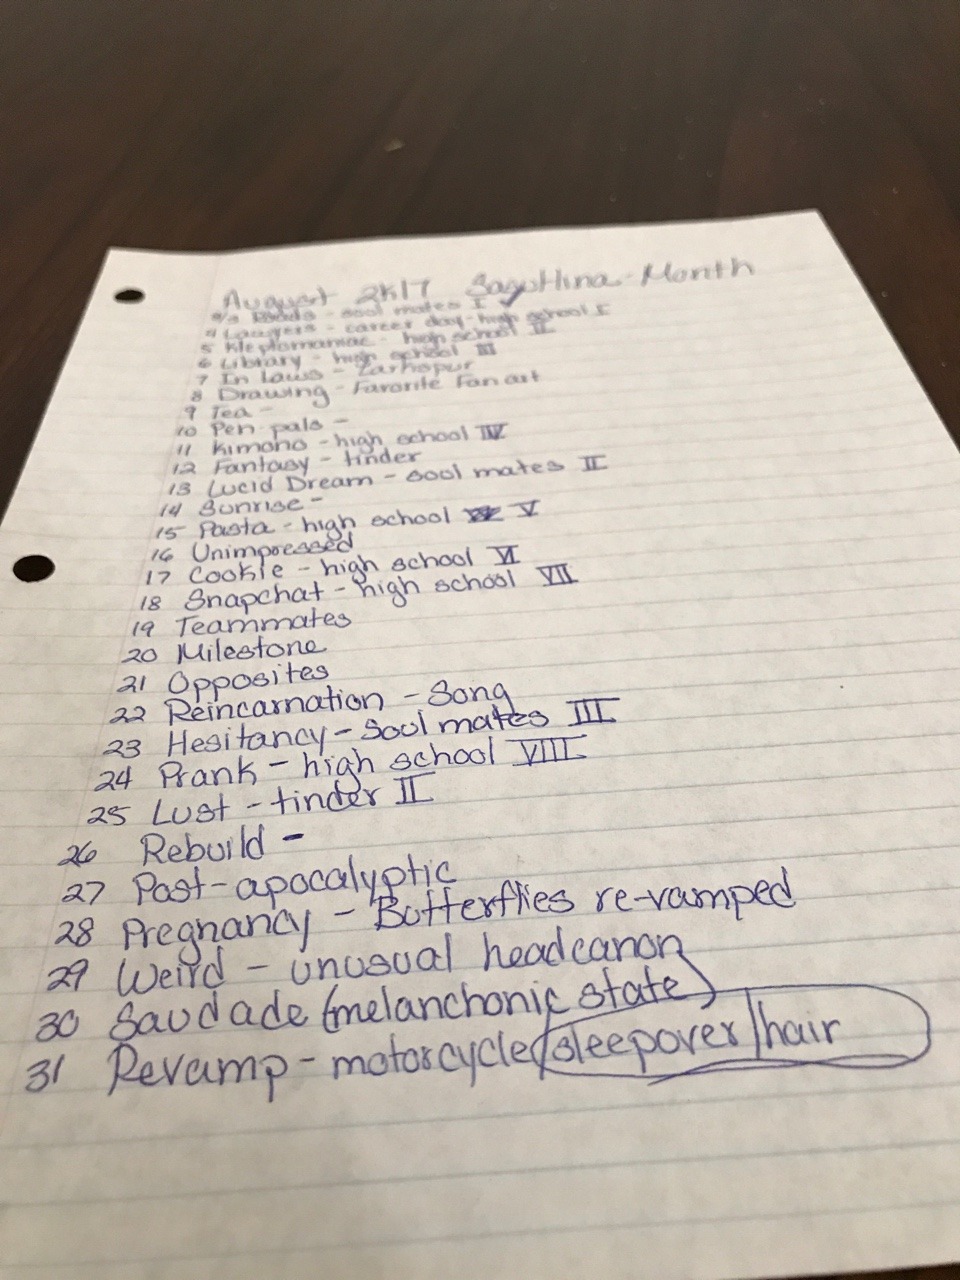 August 2K17 SasuHina Month
soul mates I
4 Lawyers - career day - high school I
5 Kleptomaniac - high school II
6 Library - high school III
7 In Laws -
8 Drawing - Favorite Fan art
9 Tea -
10 Pen pals -
11 Kimono - high school IV
12 Fantasy - tinder
13 Lucid Dream - soul mates II
14 Sunrise -
15 Pasta - high school V
16 Unimpressed
17 Cookie - high school VI
18 Snapchat - high school VII
19 Teammates
20 Milestone
21 Opposites
22 Reincarnation - Song
23 Hesitancy - Soul mates III
24 Prank - high school VIII
25 Lust - tinder II
26 Rebuild -
27 Post-apocalyptic
28 Pregnancy - Butterflies re-vamped
29 Weird - unusual headcanon
30 Saudade (melanchonic state)
31 Revamp - motorcycle/sleepover/hair